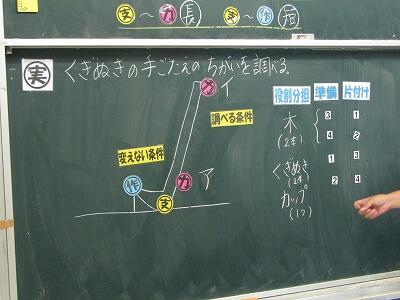 支～力 長 支～作 短
実 くぎぬきの手ごたえのちがいを調べる。
力 イ
調べる条件
変えない条件
作 支 力 ア
役割分担 準備 片付け
木 3 1
(2本) 4 2
くぎぬき 1 3
(2本) 2 4
カップ
(1つ)